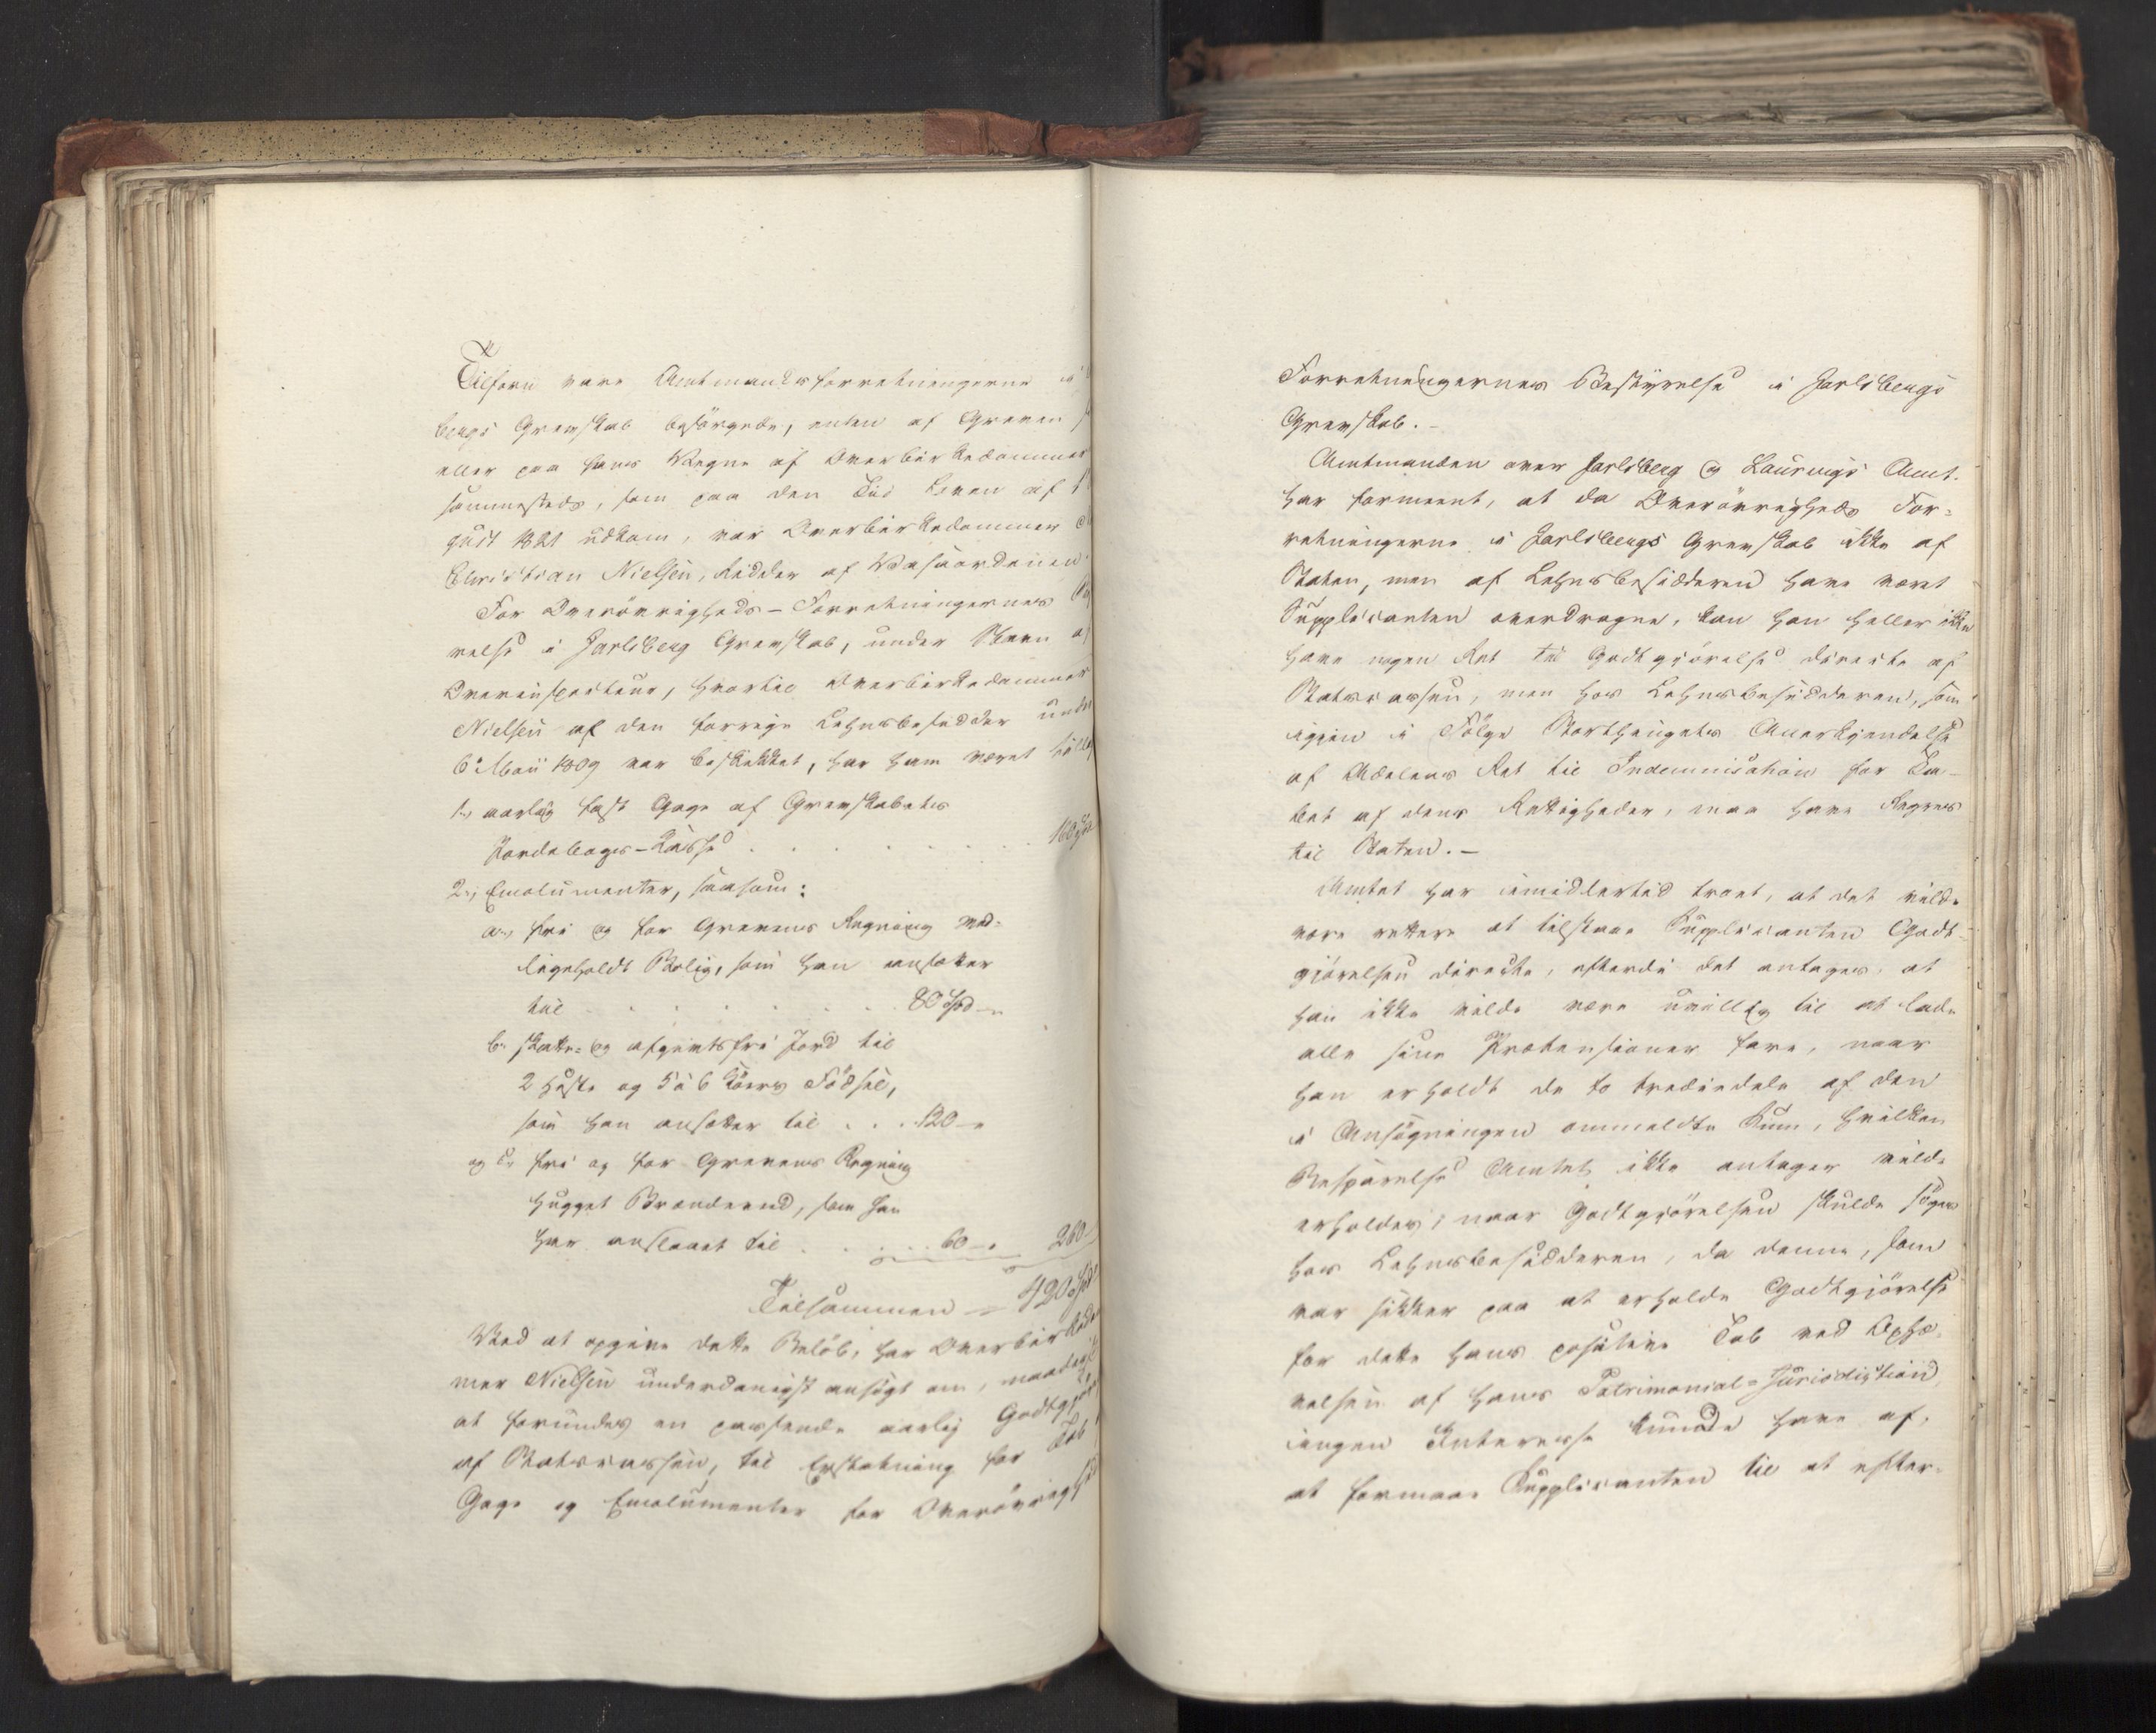 Tilforn vare Amtmandsforretningerne i
bergs Grevskab besörgede, enten af Greven
eller paa hans Vegne af Overbirkedommer
sammesteds, som paa den Tid Loven af
gust 1821 udkom, var Overbirkedommer
Christian Nielsen, Ridder af Vasaordenen.
For Overövrigheds-Forretningernes
relse i Jarlsberg Grevskab, under Navn af
Overinspecteur, hvortil Overbirkedommer
Nielsen af den forrige Lehnsbesidder under
6 Maii 1809 var beskikket, har ham været tillagt
1., aarlig fast Gage af Grevskabets
Jordebogs-Kasse . . . . . . . . 160 Spd
2., Emolumenter, saasom:
a., fri og for Grevens Regning ved-
ligeholdt Bolig, som han ansætter
til . . . . . . . 80 Spd
b., skatte- og afgiftsfri Jord til
2 Heste og 5 à 6 Köers Födsel,
som han ansætter til . . . 120 -
og c., fri og for Grevens Regning
hugget Brændeved, som han
har anslaaet til . . . . 60 - 260 -
Tilsammen - 420 Spd
Ved at opgive dette Belöb, har Overbirkedom
mer Nielsen underdanigst ansögt om, naadigst
at forundes en passende aarlig Godtgjör
af Statscassen, til Erstatning for Tab
Gage og Emolumenter for Overövrigheds
Forretningernes Bestyrelse i Jarlsbergs
Grevskab. -
Amtmanden over Jarlsberg og Laurvigs Amt.
har formeent, at da Overövrigheds For-
retningerne i Jarlsbergs Grevskab ikke af
Staten, men af Lehnsbesidderen have været
Supplicanten overdragne, kan han heller ikke
have nogen Ret til Godtgjörelse directe af
Statscassen, men hos Lehnsbesidderen, som
igjen i Fölge Storthingets Anerkjendelse
af Adelens Ret til Indemnisation for Ta-
bet af dens Rettigheder, maa have Regres
til Staten. -
Amtet har imidlertid troet, at det vilde
være rettere at tilstaae Supplicanten Godt-
gjörelsen directe, efterdi det antages, at
han ikke vilde være uvillig til at lade
alle sine Prætensioner fare, naar
han erholdt de to trediedele af den
i Ansögningen ommeldte Sum, hvilken
Besparelse Amtet ikke antager vilde
erholdes, naar Godtgjörelsen skulde söges
hos Lehnsbesidderen, da denne, som
var sikker paa at erholde Godtgjörelse
for dette hans positive Tab ved Ophæ-
velsen af hans Patrimonial-Jurisdiction,
ingen Interesse kunde have af,
at formaae Supplicanten til at efter-